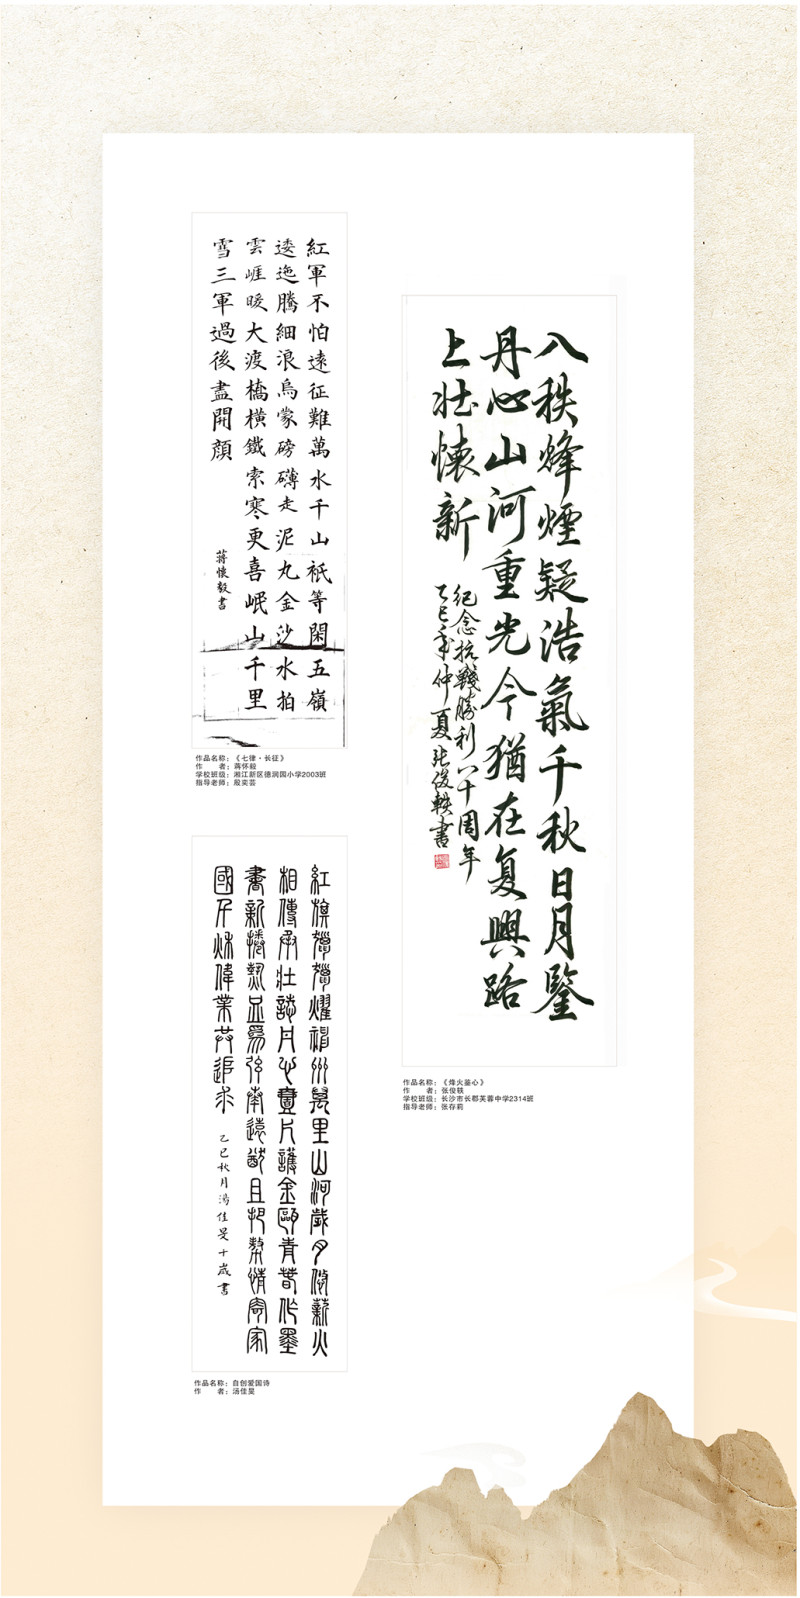 紅軍不怕遠征難萬水千山祇等閑五嶺
逶迤騰細浪烏蒙磅礴走泥丸金沙水拍
雲崕暖大渡橋橫鐵索寒更喜岷山千里
雪三軍過後盡開顏
蔣懷毅書
作品名称：《七律·长征》
作　　者：蒋怀毅
学校班级：湘江新区德润园小学2003班
指导老师：殷奕芸
八秩烽煙疑浩氣千秋日月鑒
丹心山河重光今猶在复興路
上壯懷新
紀念抗戰勝利八十周年
乙巳年仲夏張俊軼書
作品名称：《烽火鉴心》
作　　者：张俊轶
学校班级：长沙市长郡芙蓉中学2314班
指导老师：张存莉
紅旗獵獵耀神州萬里山河歲月悠薪火
相傳承壯誌丹心壹片護金甌青春作墨
書新捲熱血為弦奏遠猷且把摯情寄家
國千秋偉業共追求
乙巳秋月湯佳旻十歲書
作品名称：自创爱国诗
作　　者：汤佳旻